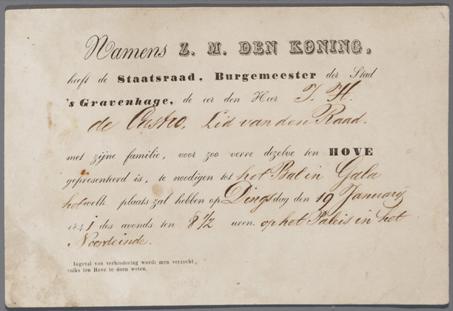 Namens Z. M. DEN KONING,
heeft de Staatsraad, Burgemeester der Stad
's Gravenhage, de eer den Heer J. H.
de Lid van den Raad.
met zijne familie, voor zoo verre dezelve ten HOVE
gepresenteerd is, te noodigen tot het Bal in Gala
hetwelk plaats zal hebben op Dingsdag den 19 January
1841 des avonds ten 8½ uren. op het Paleis in het
Noordeinde.
Ingeval van verhindering wordt men verzocht,
zulks ten Hove te doen weten.